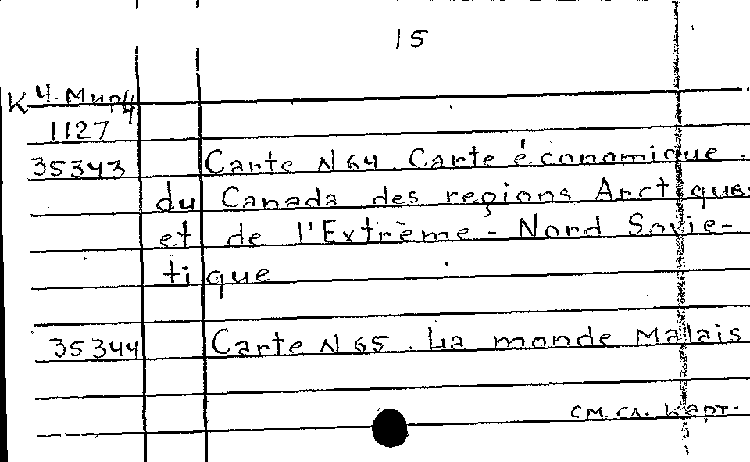 15
К Ч. Мир/4
1127
35343 Carte N 64. Carte économique
du Canada des regions Arctiques
et de l'Extrème - Nord Sovie-
tique
35344 Carte N 65. La monde Malais
см. сл. карт.